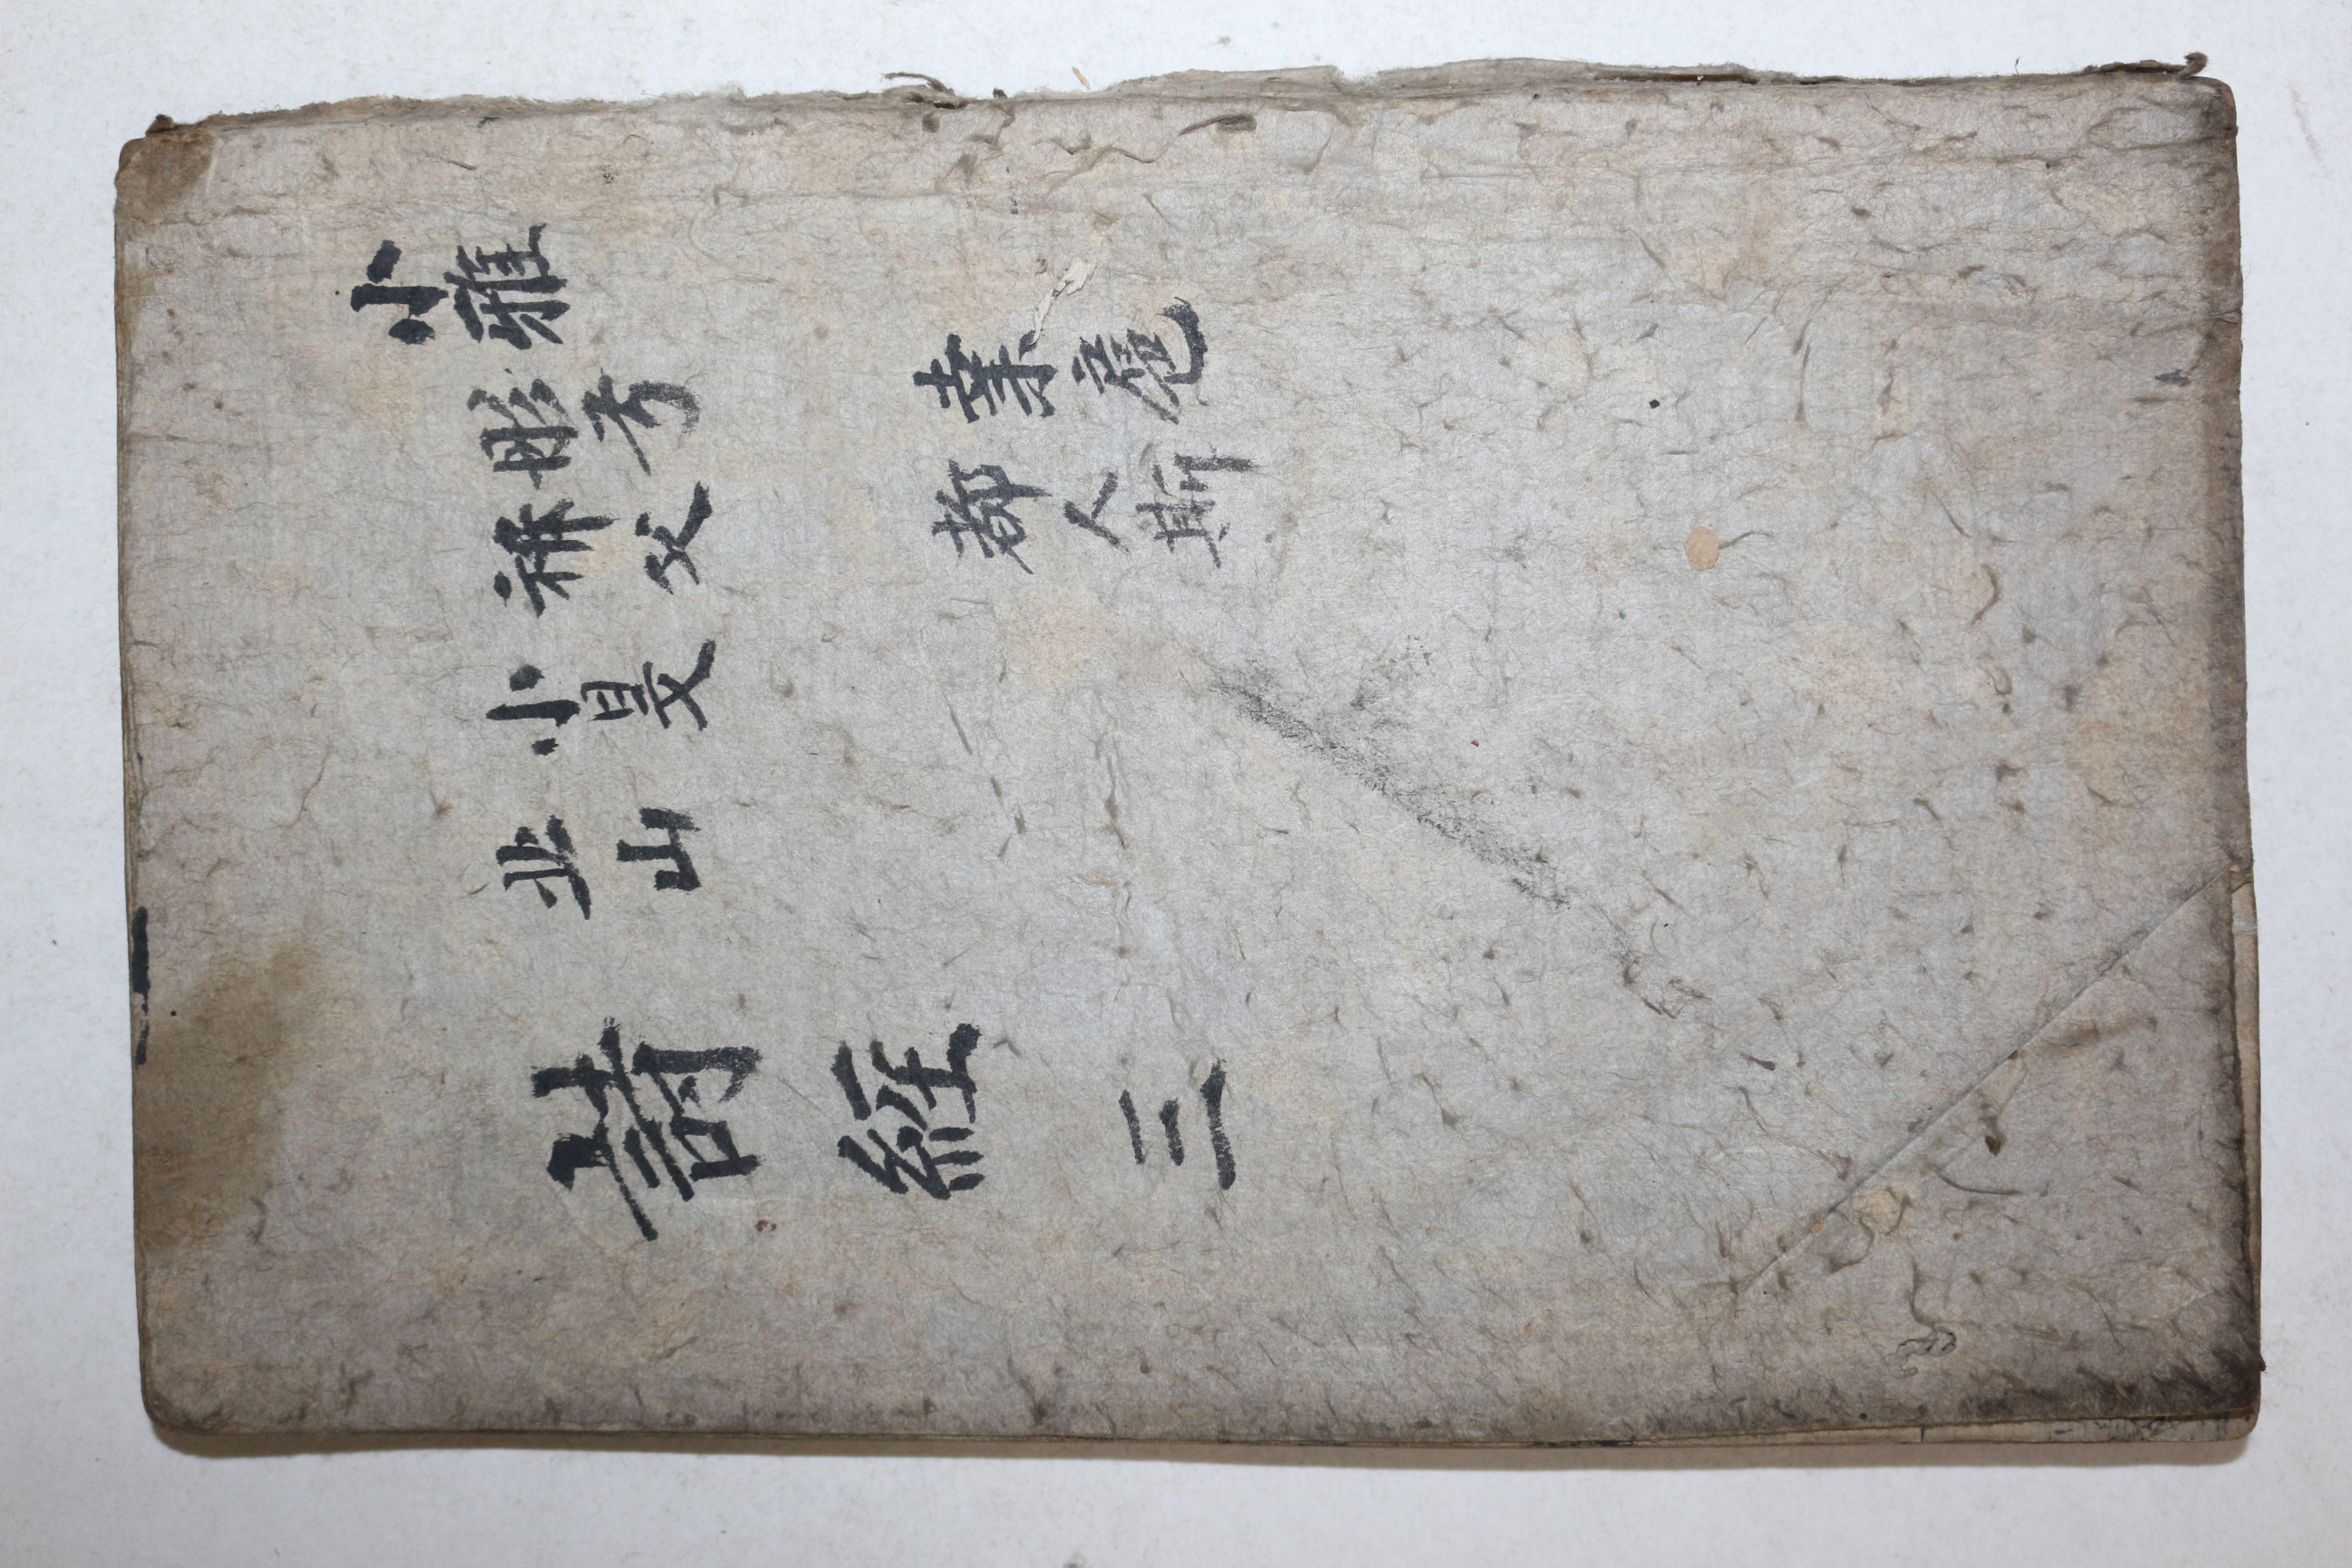 小雅
彤弓
祈父
小旻
北山
桒扈
都人斯
詩經三